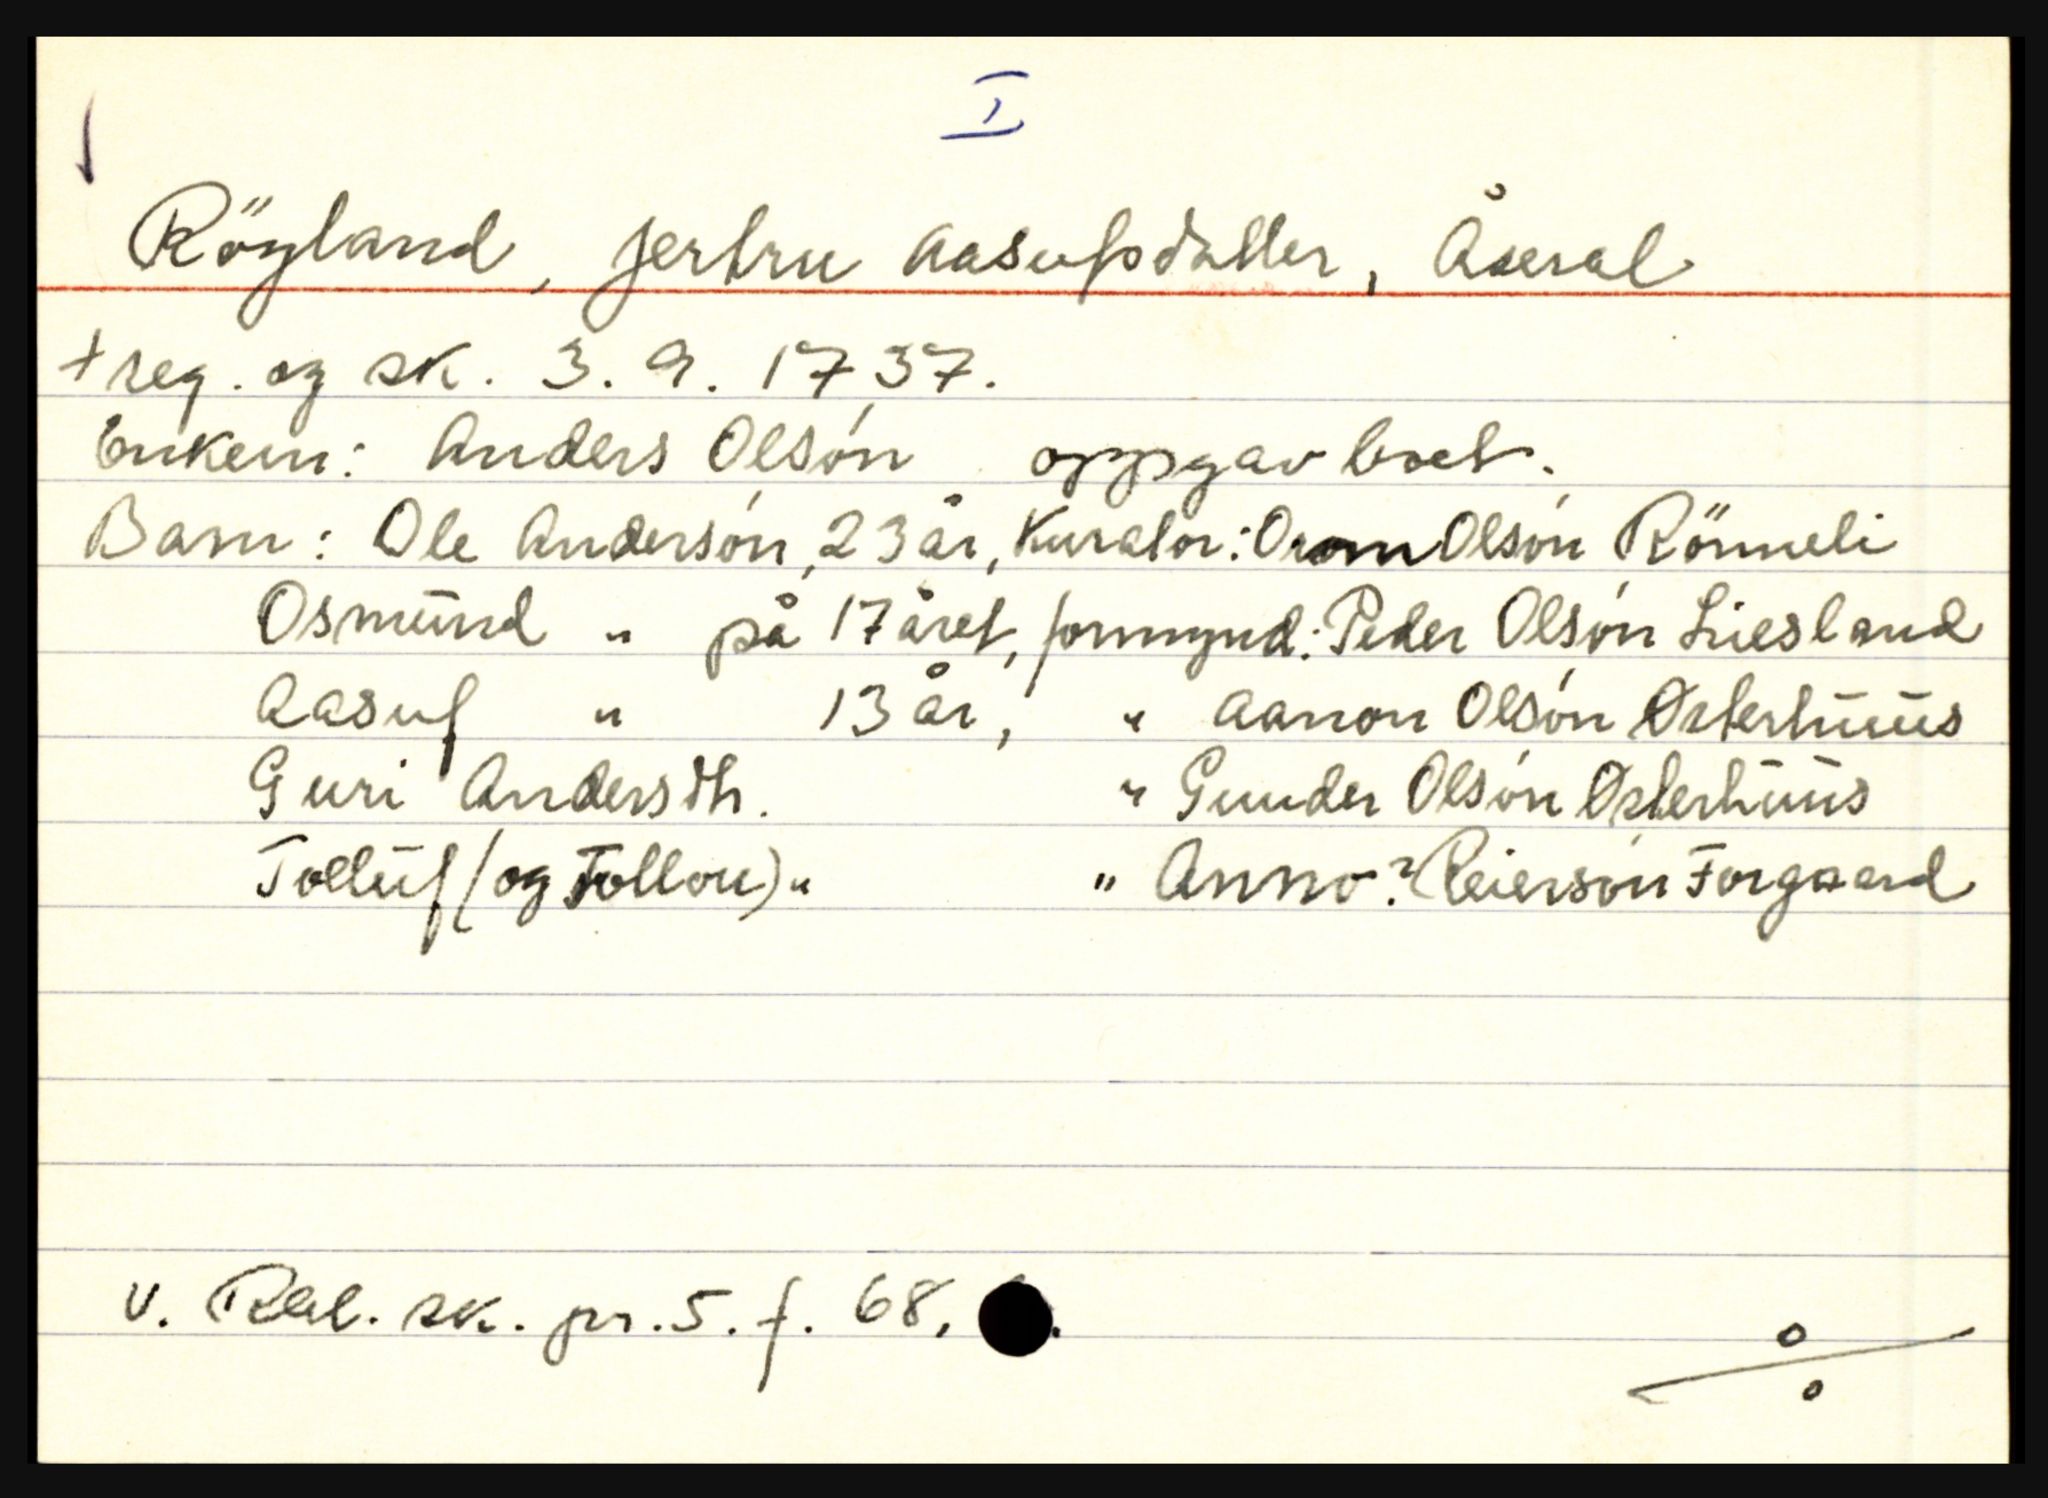 I
Röyland, Jertru Aasufsdatter, Åseral
+ reg. og sk. 3. 9. 1737.
Enkem: Anders Olsøn oppgav boet.
Barn: Ole Andersøn, 23 år, Kurator: Olsøn Rönneli
Osmund " på 17 året, formynd: Peder Olsøn Liesland
Aasuf " 13 år, " Aanon Olsøn Østerhuus
Guri Andersdtr. " Gunder Olsøn Østerhuus
Tolluf (og Tollou) " " Anno? Reiersøn Forgaard
v. Rbl. sk. pr. 5. f. 68,